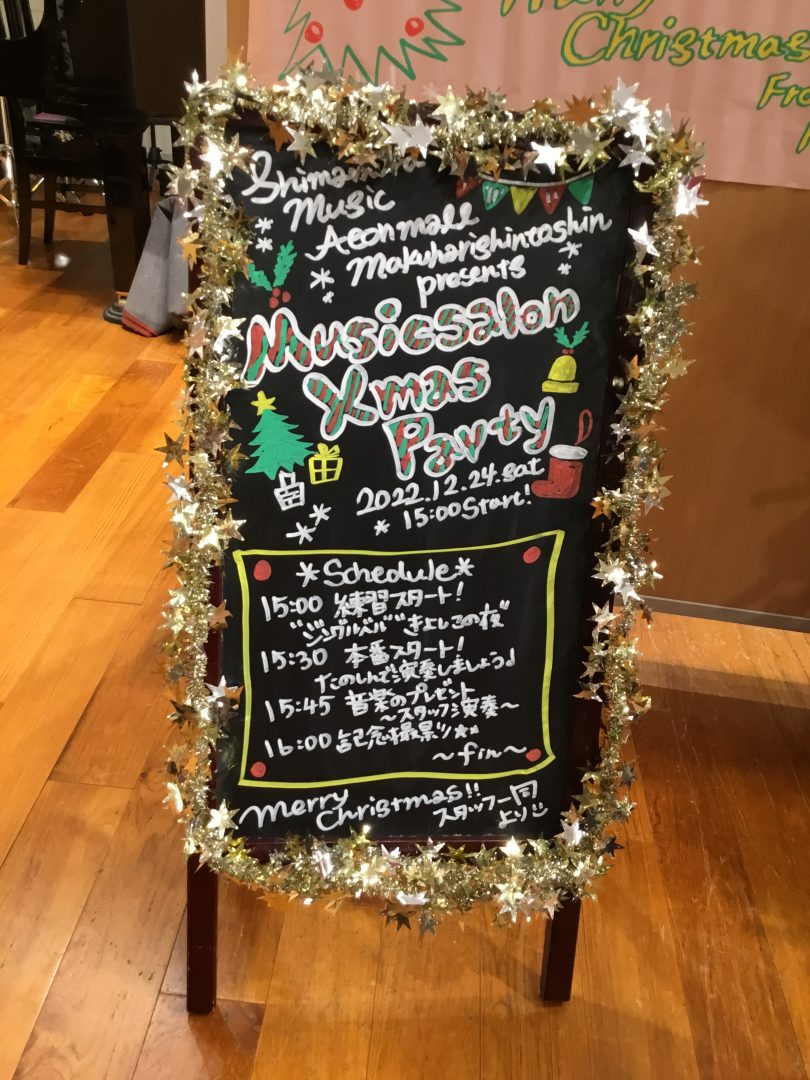 Merry
Christmas
Fro
Shimamura
Music
Aeonmall
Makuharishintoshin
presents
Musicsalon
Xmas
Party
2022.12.24.sat
* 15:00 Start!
*Schedule*
15:00 練習スタート!
"ジングルベル" "きよしこの夜"
15:30 本番スタート!
たのしんで演奏しましょう♪
15:45 音楽のプレゼント
〜スタッフ演奏〜
16:00 記念撮影
〜fin〜
Merry
Christmas!!
スタッフ一同
より